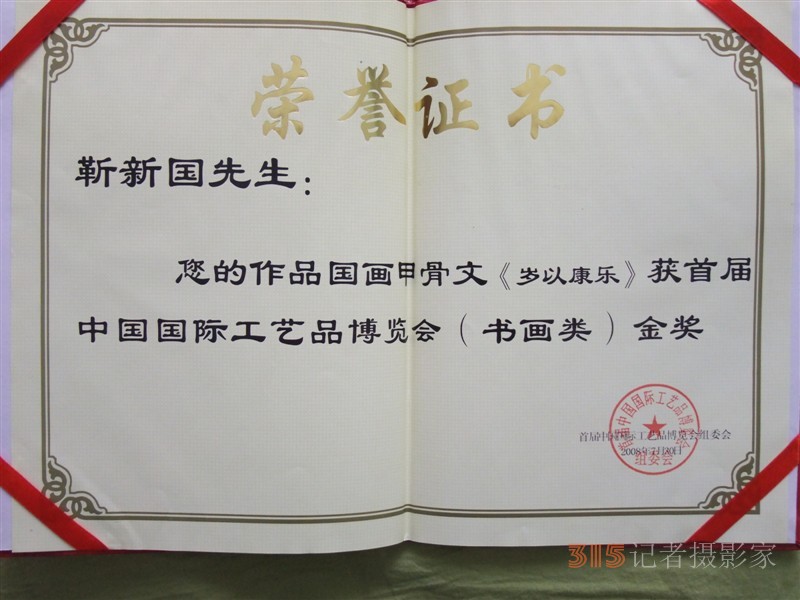 荣誉证书
靳新国先生：
您的作品国画甲骨文《岁以康乐》获首届
中国国际工艺品博览会（书画类）金奖
首届中国国际工艺品博览会
组委会
首届中国国际工艺品博览会组委会
2008年7月30日
315记者摄影家